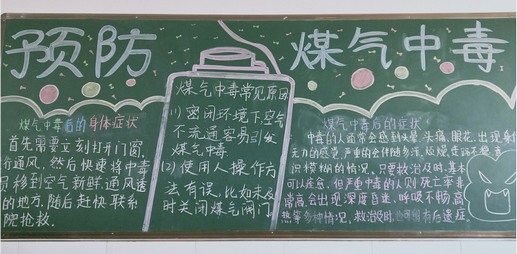 预防
煤气中毒
煤气中毒后的身体症状
首先需要立刻打开门窗,
通风,然后快速将中毒
移到空气新鲜,通风透
的地方,随后赶快联系
院抢救。
煤气中毒常见原因
(1)密闭环境下空气
不流通容易引发
煤气中毒
(2)使用人操作方
法有误,比如未及
时关闭煤气阀门
煤气中毒后的症状
中毒的人通常会感到头晕、头痛、眼花、出现身
无力的感觉,严重的会伴随多汗、烦燥、走路不稳、意
识模糊的情况。只要救治及时,基本
可以痊愈,但严重中毒的人则死亡率非
常高,会出现深度昏迷、呼吸不畅、高
热等多种情况,救治及时,也可能有后遗症